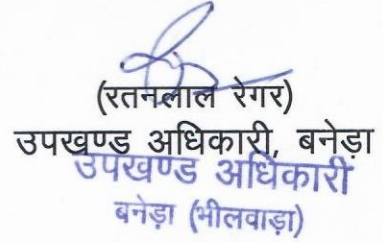 (रतनलाल रेगर)
उपखण्ड अधिकारी, बनेड़ा
उपखण्ड अधिकारी
बनेड़ा (भीलवाड़ा)